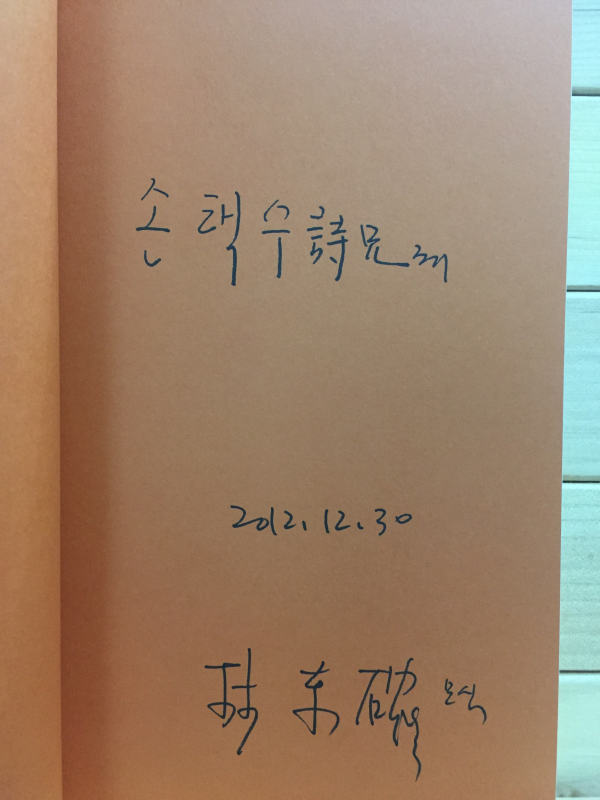 손 택 수 詩兄께
2012. 12. 30
林 東 確 모심